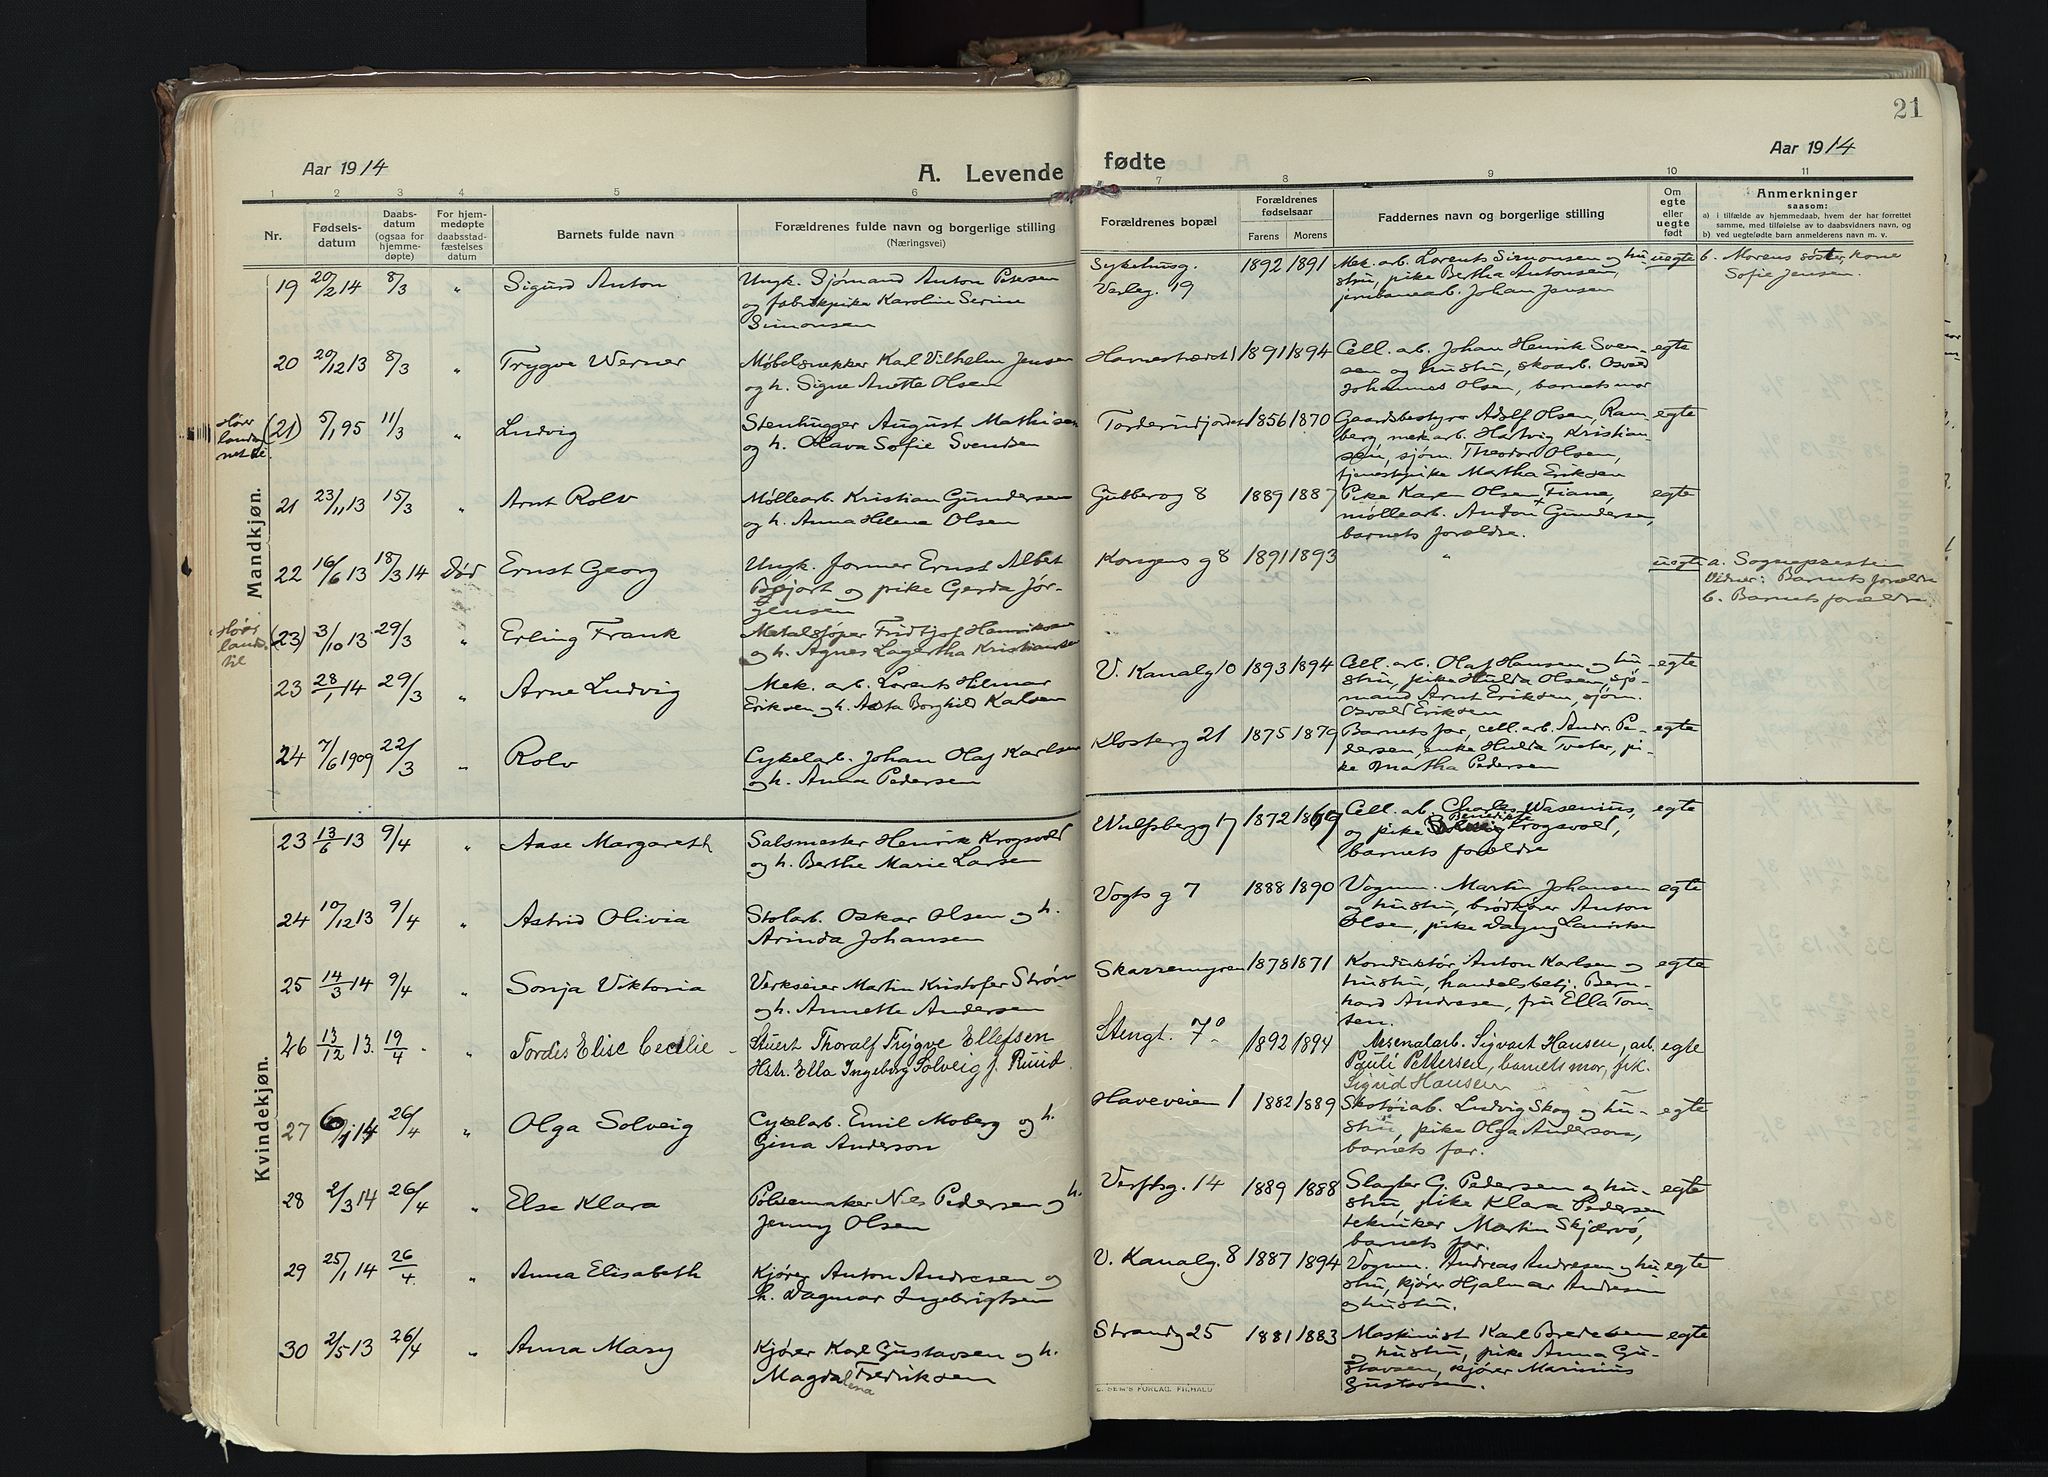 21
Aar 1914
A. Levende fødte
Aar 1914
1 2 3 4 5 6 7 8 9 10 11
Nr.
Fødsels-
datum
Daabs-
datum
(ogsaa for
hjemme-
døpte)
For hjem-
medøpte
daabsstad-
fæstelses
datum
Barnets fulde navn
Forældrenes fulde navn og borgerlige stilling
(Næringsvei)
Forældrenes bopæl
Forældrenes
fødselsaar
Farens Morens
Faddernes navn og borgerlige stilling
Om
egte
eller
uegte
født
Anmerkninger
saasom:
a) i tilfælde av hjemmedaab, hvem der har forrettet
samme, med tilføielse av to daabsvidners navn, og
b) ved uegtefødte barn anmelderens navn m. v.
Mandkjøn.
19 20/2 14 8/3 " Sigurd Anton
Ungk. Sjømand Anton Petersen
og fabrikpike Karoline Serine
Simonsen
Sykehusg.
Varleg. 19
1892 1891
Mek. arb. Lorents Simonsen og hu
stru, pike Bertha Antonsen,
jernbanearb. Johan Jensen
uegte
b. Morens søster, kone
Sofie Jensen.
20 20/12 13 8/3 " Trygve Werner
Møbelsnekker Karl Vilhelm Jensen
og h. Signe Anette Olsen
Havnestrædet 1
1891 1894
Cell. arb. Johan Henrik Sven-
sen og hustru, skoarb. Osvald
Johannes Olsen, barnets mor
egte
(21) 5/1 95 11/3 " Ludvig
Stenhugger August Mathisen
og h. Olava Sofie Svendsen
Torderudjordet
1856 1870
Gaardsbestyrer Adolf Olsen, Ram
berg, mek arb. Hartvig Kristian
sen, sjøm. Theodor Olsen,
tjenestepike Martha Eriksen
egte
21 23/11 13 15/3 " Arnt Rolv
Møllearb. Kristian Gundersen
og h. Anna Helene Olsen
Gubberog 8
1889 1887
Pike Karen Olsen Fiane,
møllearb. Anton Gundersen,
barnets forældre.
egte
22 16/6 13 18/3 14 Død Ernst Georg
Ungk. former Ernst Albert
Bjejort og pike Gerda Jør-
gensen
Kongens g 8
1891 1893
"
uegte
a. Sognepresten
Vidner: Barnets forældre
b. Barnets forældre
Hører
lands.
til
(23) 3/10 13 29/3 " Erling Frank
Metalstøper Fridtjof Henriksen
og h. Agnes Lagertha Kristiansen
23 28/1 14 29/3 " Arne Ludvig
Mek. arb. Lorents Hilmar
Eriksen og h. Asta Borghild Karlsen
V. Kanalg 10
1893 1894
Cell. arb. Olaf Hansen og hu
stru, pike Hulda Olsen, sjø-
mand Arnt Eriksen, sjøm.
Osvald Eriksen
egte
24 7/6 1909 22/3 " Rolv
Cykelarb. Johan Olaf Karlsen
og h. Anna Pedersen
Klosterg 21
1875 1879
Barnets far, cell. arb. Andr. Pe-
dersen, enke Hulda Tveter, pi-
ke Martha Pedersen
egte
Kvindekjøn.
23 13/6 13 9/4 " Aase Margareth
Salsmester Henrik Krogsvold
og h. Berthe Marie Larsen
Wulfsbergg 17
1872 1869
Cell. arb. Charles Wasenius,
og pike Benedikte Krogsvold,
barnets forældre
egte
24 10/12 13 9/4 " Astrid Olivia
Stolarb. Oskar Olsen og h.
Arinda Johansen
Vogts g 7
1888 1890
Vognm. Martin Johansen
og hustru, brødkjører Anton
Olsen, pike Dagny Lauritsen
egte
25 14/3 14 9/4 " Sonja Viktoria
Verkseier Martin Kristofer Strøm
og h. Annette Andersen
Skarremyren
1878 1871
Konduktør Anton Karlsen og
hustru, handelsbetj. Bern-
hard Andresen, fru Ella Tom-
sen.
egte
26 13/12 13. 19/4 " Tordis Elise Cecilie
Stuert Thoralf Trygve Ellefsen
Hstr. Ella Ingeborg Solveig f. Ruud.
Stengt. 7°
1892 1894
Arsenalarb. Sigvart Hansen, arb.
Pauli Pettersen, barnets mor, pk.
Sigrid Hansen
egte
27 6/1 14 26/4 " Olga Solveig
Cykelarb. Emil Moberg og h.
Gina Anderson
Haveveien 1
1882 1889
Skotøiab. Ludvig Skog og hu-
stru, pike Olga Anderson,
barnets far.
egte
28 2/3 14 26/4 " Else Klara
Pølsemaker Nils Pedersen og h.
Jenny Olsen
Verftsg. 14
1889 1888
Slagter C. Pedersen og hu-
stru, pike Klara Pedersen
tekniker Martin Skjærvø,
barnets far.
egte
29 25/1 14 26/4 " Anna Elisabeth
Kjører Anton Andresen og
h. Dagmar Ingebrigtsen
V. Kanalg. 8
1887 1894
Vognm. Andreas Andresen og hu
stru, kjører Hjalmar Andresen
og hustru.
egte
30 2/5 13 26/4 " Anna Mary
Kjører Karl Gustavsen og h.
Magdalena Fredriksen
Strandg 25
1881 1883
Maskinist Karl Bredesen
og hustru, pike Anna Gu-
stavsen, kjører Marinius
Gustavsen.
egte
E. SEM'S FORLAG. FR.HALD